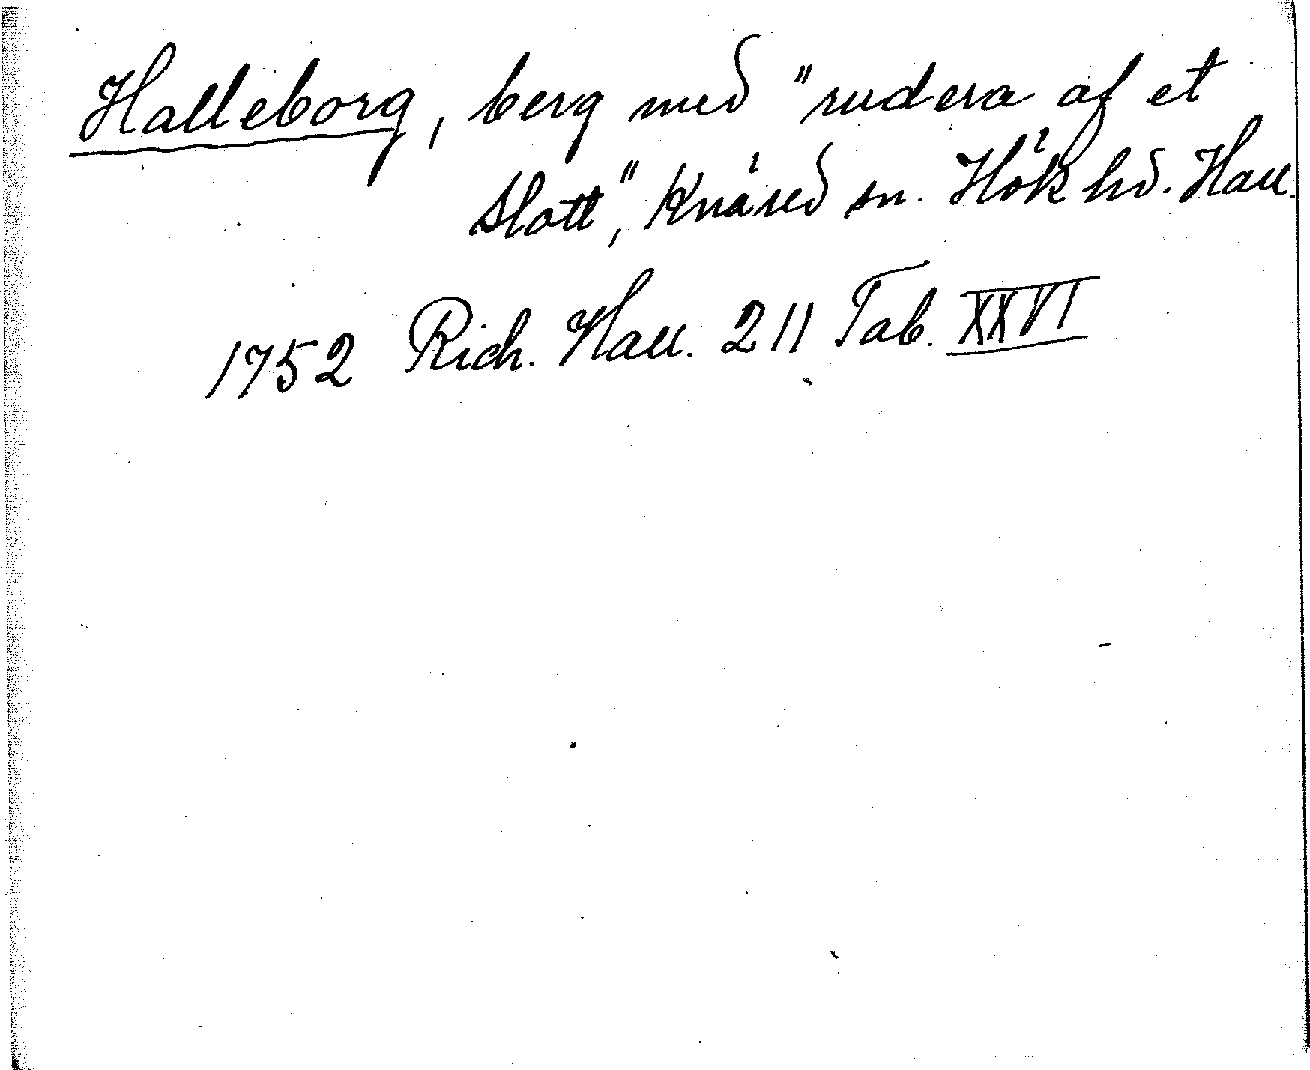 Halleborg, berg med "rudera af et
slott", Knäred sn. Hök hd. Hall.
1752 Rich. Hall. 211 Tab. XXVI